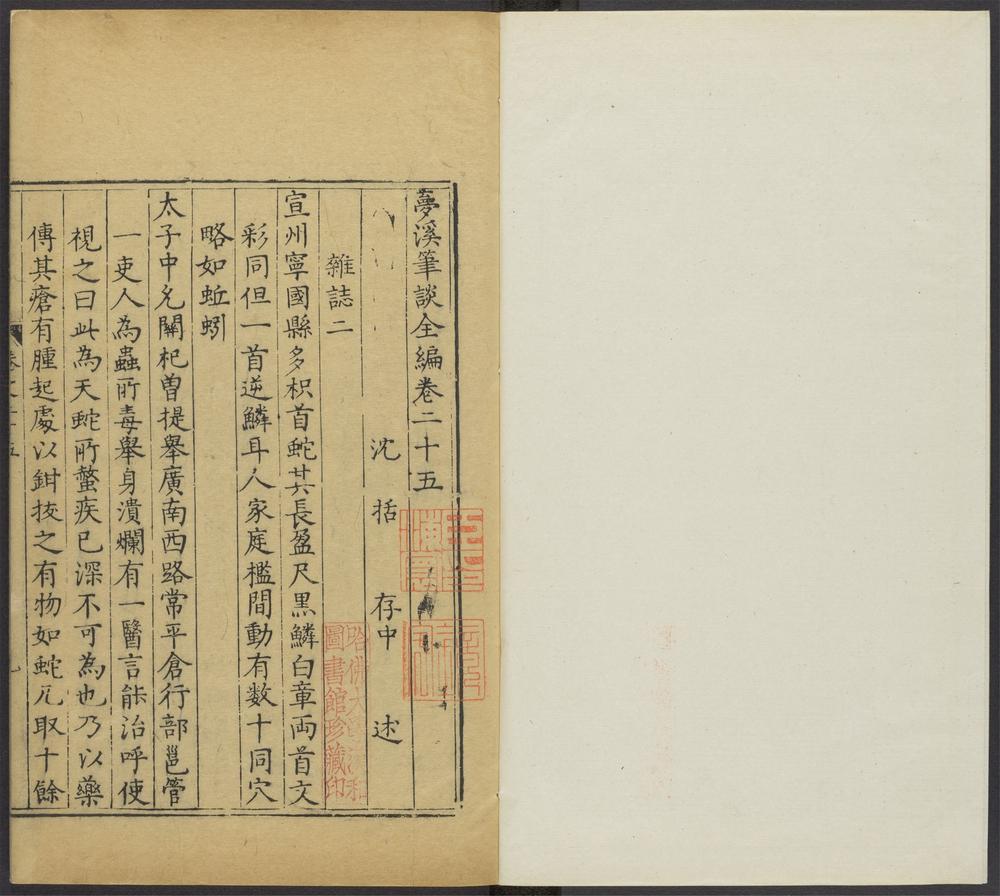 夢溪筆談全編卷二十五
沈括存中述
雜誌二
宣州寧國縣多枳首蛇其長盈尺黑鱗白章兩首文
彩同但一首逆鱗耳人家庭檻間動有数十同穴
略如蚯蚓
太子中允關杞曽提舉廣南西路常平倉行部邕管
一吏人為蟲所毒舉身潰爛有一醫言能治呼使
視之曰此為天蛇所螫疾已深不可為也乃以藥
傅其瘡有腫起處以鉗拔之有物如蛇凡取十餘
圖書館珍藏印